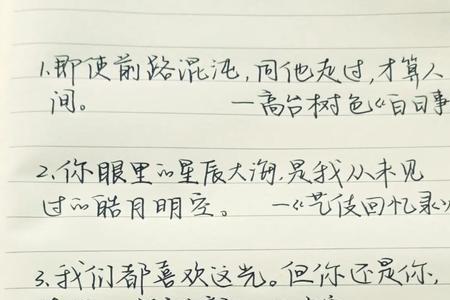 1.即使前路混沌,同他走过,才算人
间。 —高台树色《白日事
2.你眼里的星辰大海,是我从未见
过的皓月明空。 —《艺伎回忆录》
3.我们都喜欢这光。但你还是你,